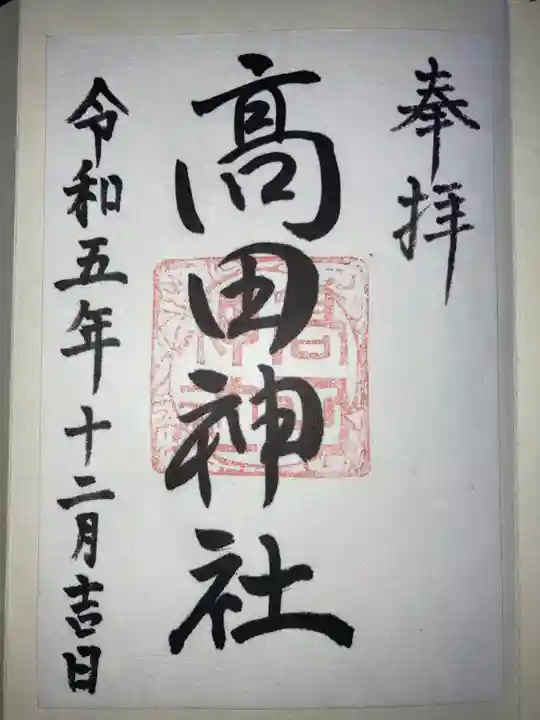 奉拝
髙田神社
令和五年十二月吉日